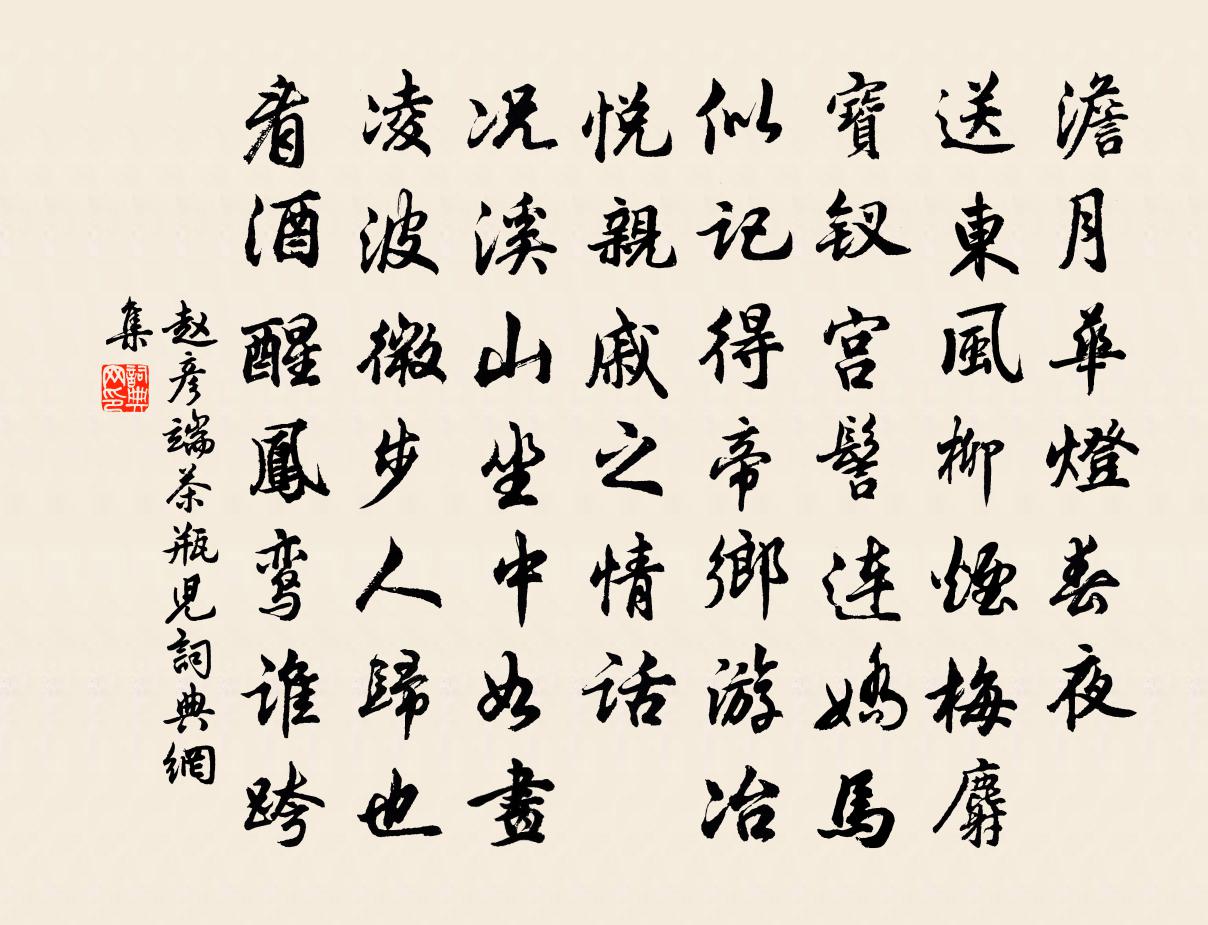 澹月華燈春夜
送東風柳煙梅麝
寶钗宫髻連嬌馬
似记得帝鄉游冶
悦親戚之情话
况溪山坐中如畫
凌波微步人歸也
看酒醒鳳鸾谁跨
赵彦端茶瓶児詞典網
集
詞典网印